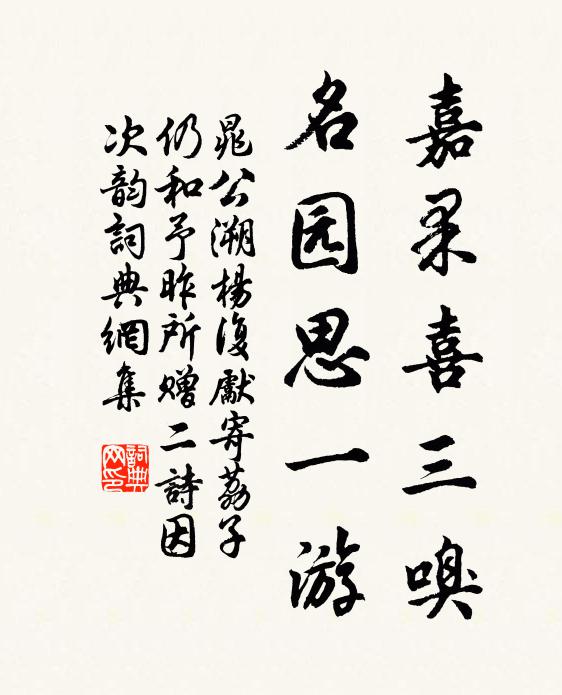 嘉果喜三嗅
名园思一游
晁公溯楊復獻寄荔子
仍和予昨所赠二詩因
次韵詞典網集
詞典
网印